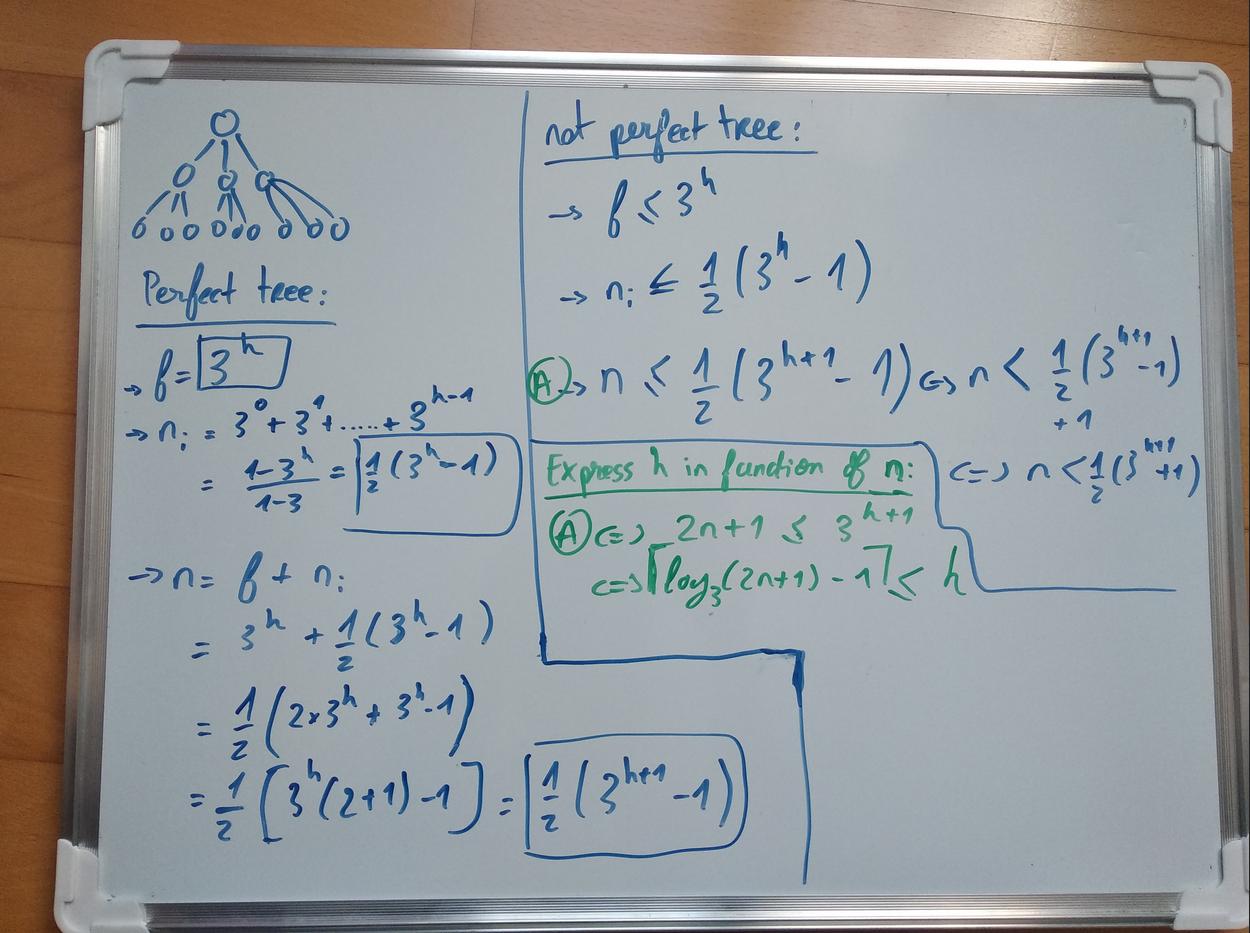 Perfect tree:
→ f = 3^h
→ n_i = 3^0 + 3^1 + ..... + 3^{h-1}
= \frac{1-3^h}{1-3} = \frac{1}{2}(3^h - 1)
→ n = f + n_i
= 3^h + \frac{1}{2}(3^h - 1)
= \frac{1}{2}(2×3^h + 3^h - 1)
= \frac{1}{2}[3^h(2+1) - 1] = \frac{1}{2}(3^{h+1} - 1)
not perfect tree:
→ f ≤ 3^h
→ n_i ≤ \frac{1}{2}(3^h - 1)
(A) → n ≤ \frac{1}{2}(3^{h+1} - 1) <=> n < \frac{1}{2}(3^{h+1} - 1)
+ 1
<=> n < \frac{1}{2}(3^{h+1} + 1)
Express h in function of n:
(A) <=> 2n+1 ≤ 3^{h+1}
<=> ⌈log_3(2n+1) - 1⌉ ≤ h